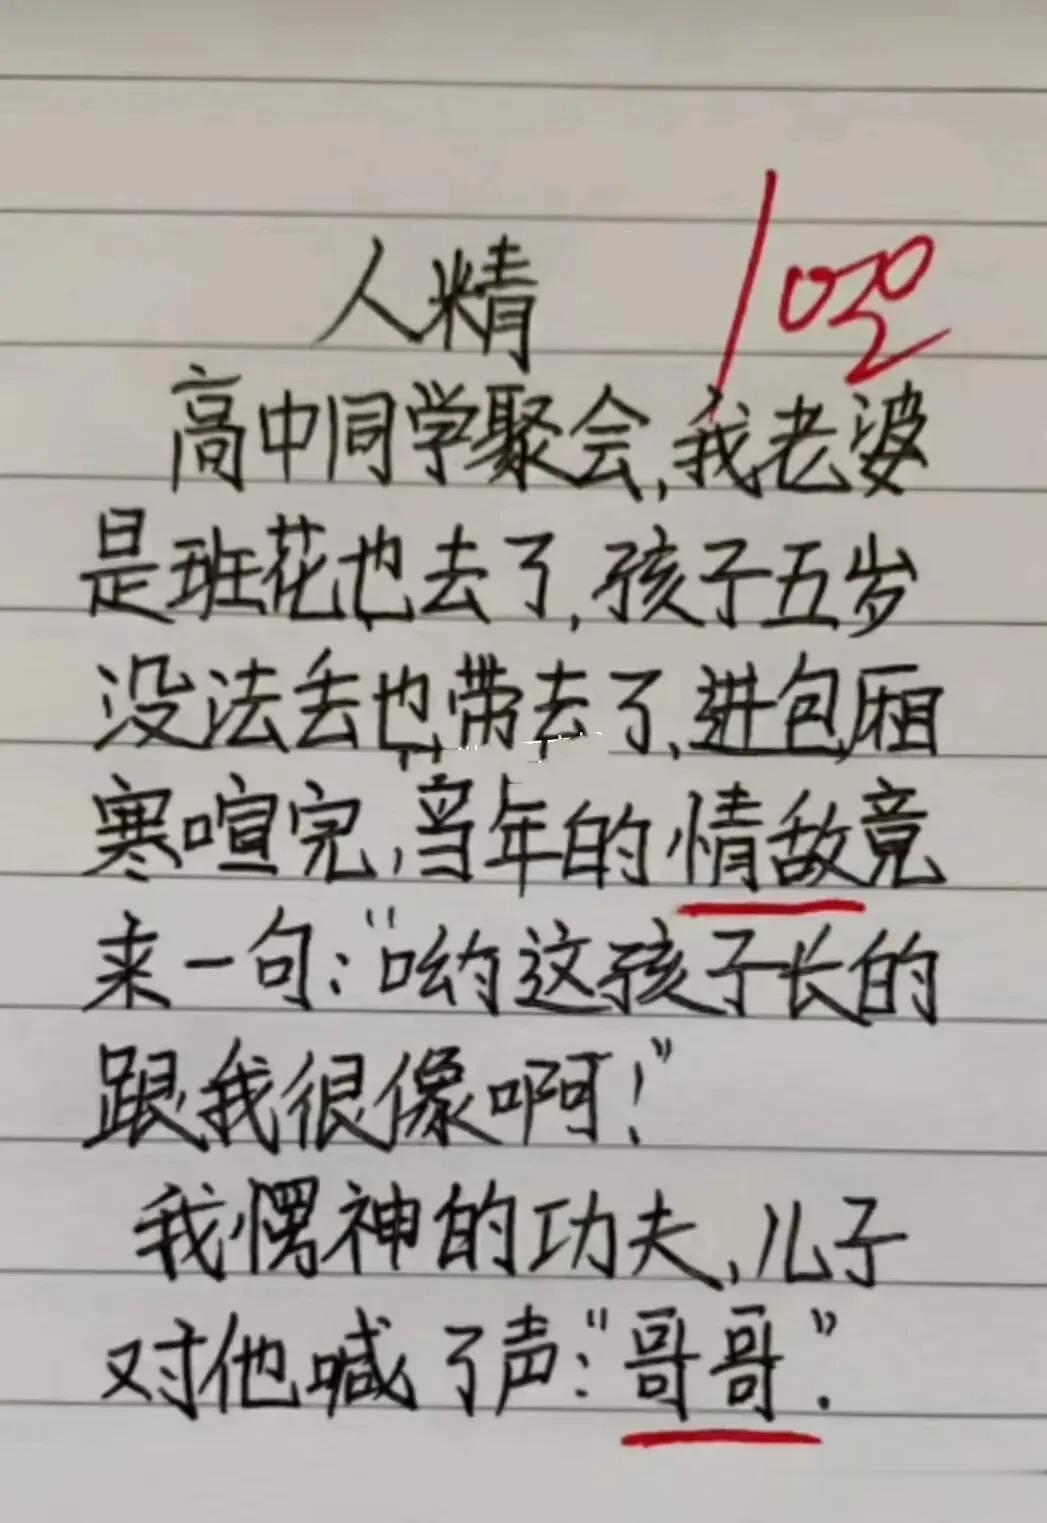 人精
100
高中同学聚会,我老婆
是班花也去了,孩子五岁
没法丢也带去了,进包厢
寒喧完,当年的情敌竟
来一句:“哟这孩子长的
跟我很像啊!”
我愣神的功夫,儿子
对他喊了声:“哥哥”.